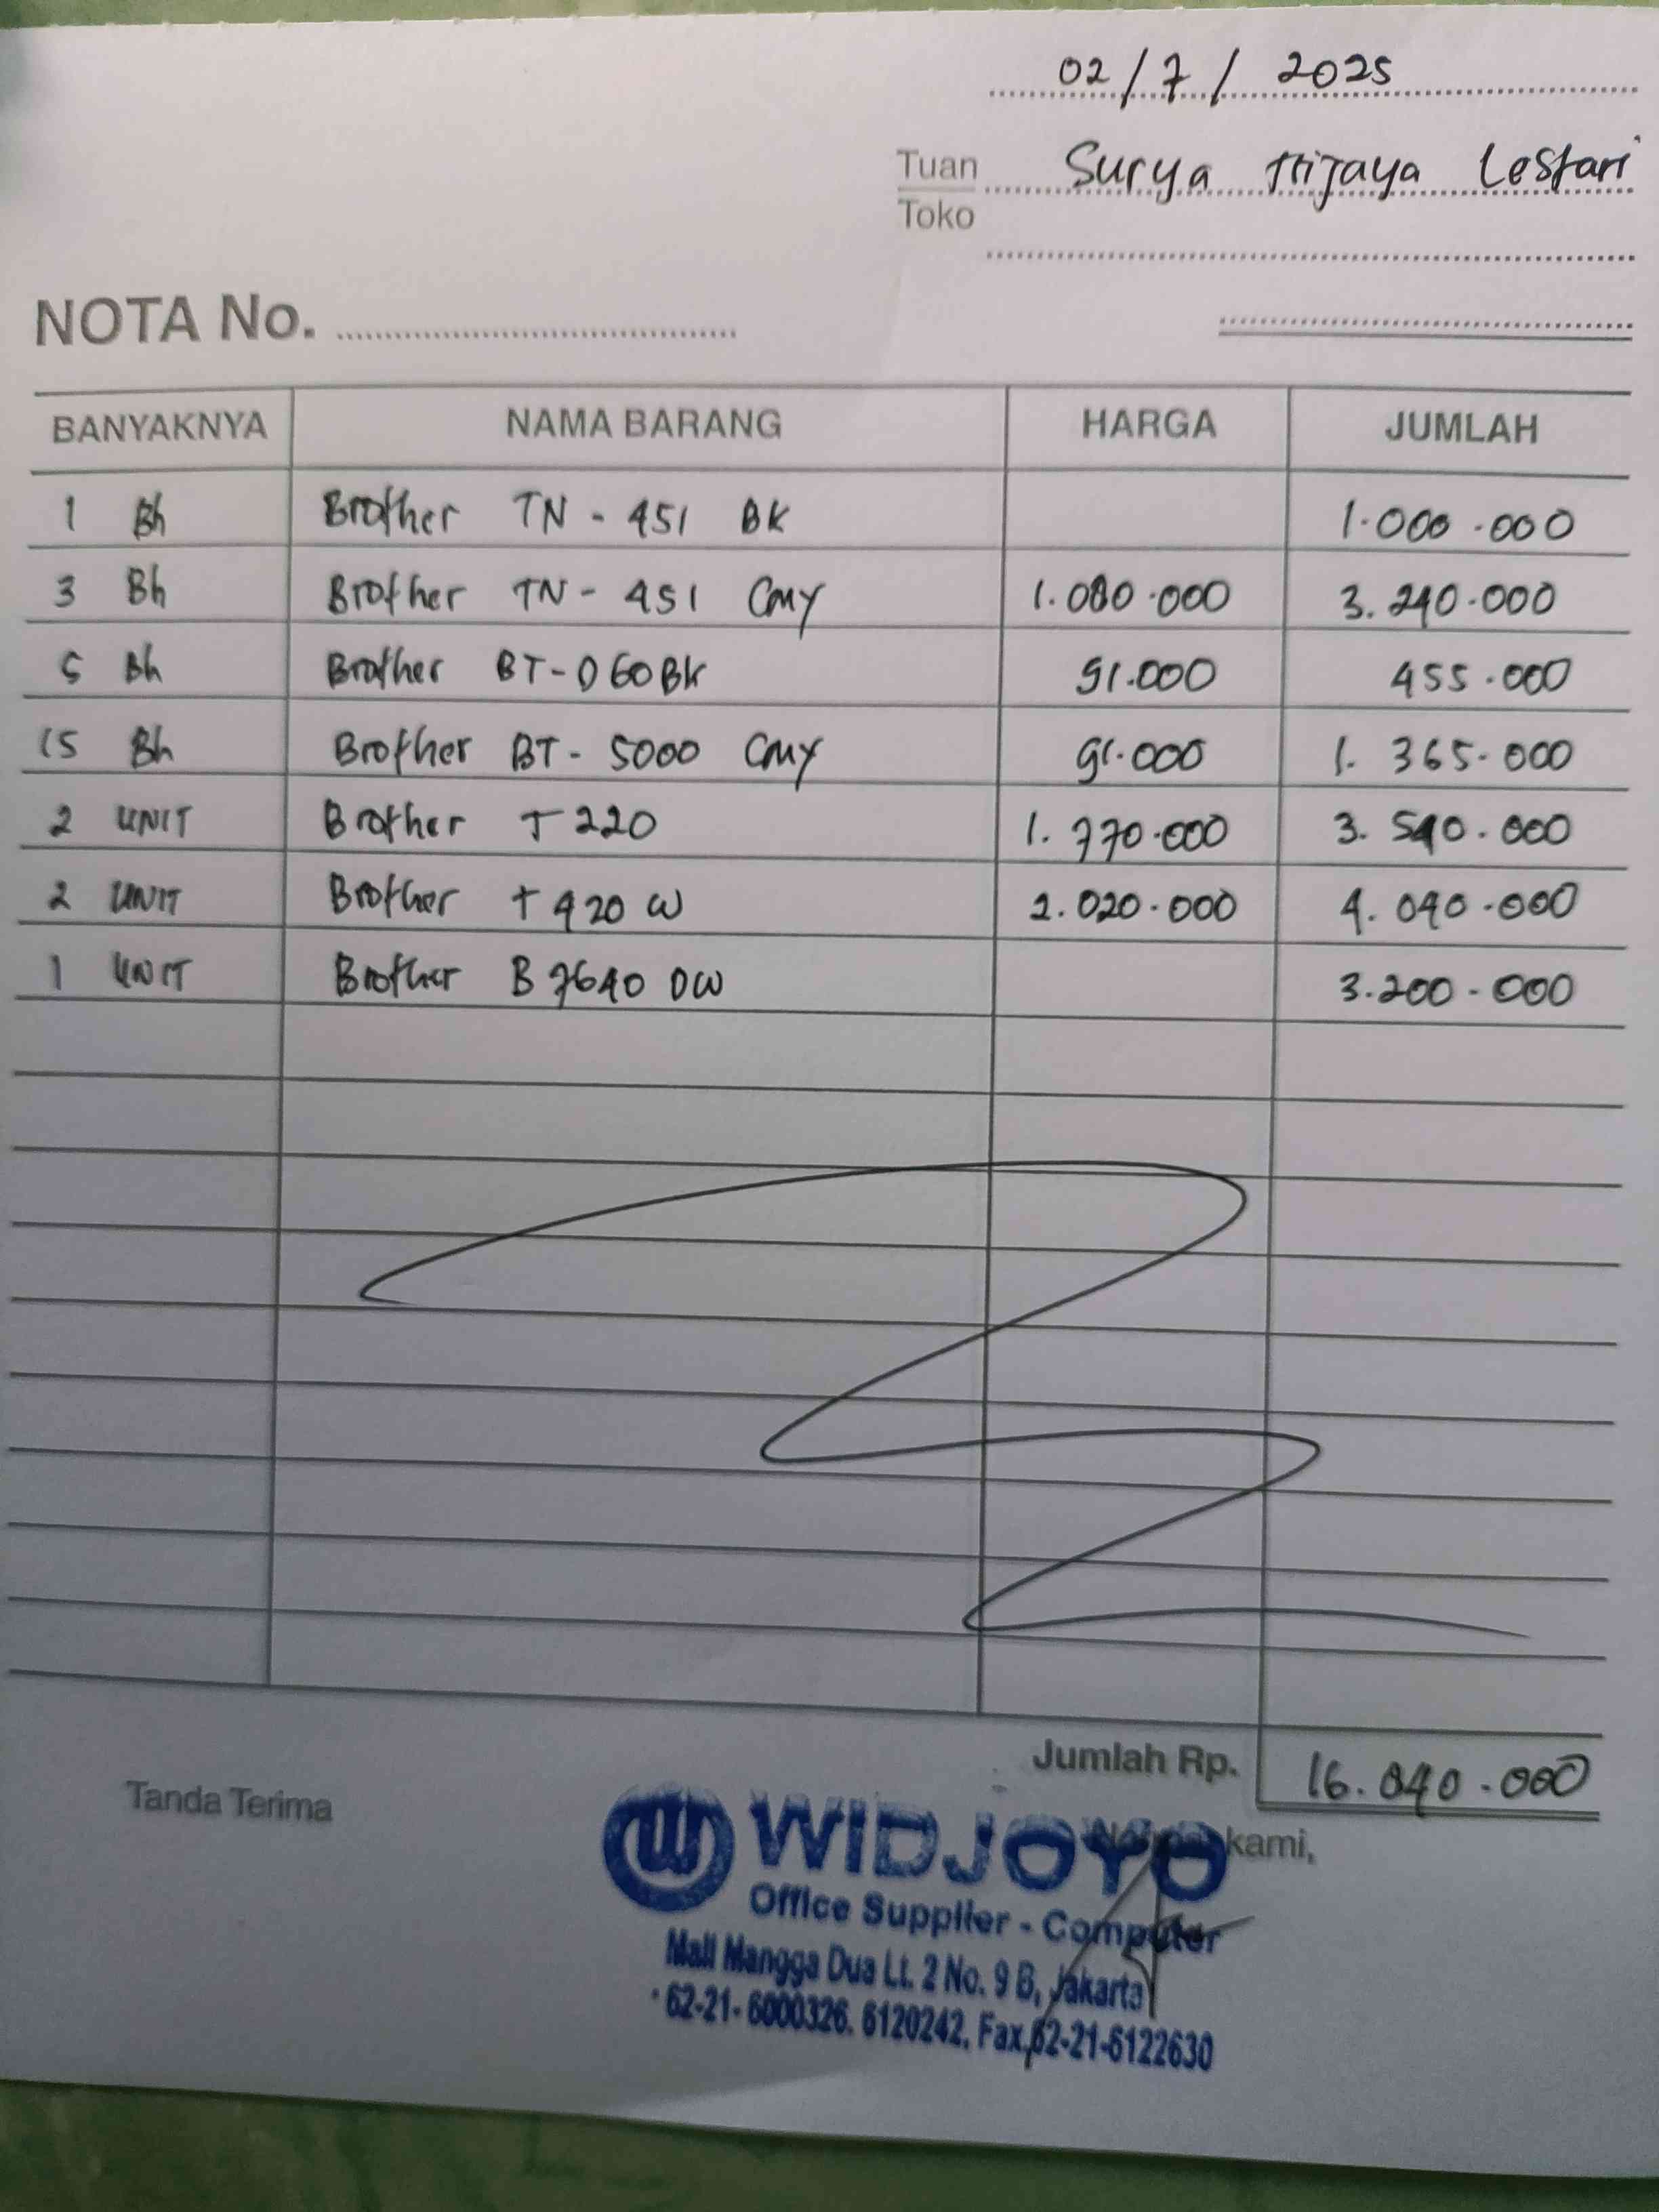 02/7/2025
Tuan Surya Trijaya Lestari
Toko
NOTA No.
BANYAKNYA NAMA BARANG HARGA JUMLAH
1 Bh Brother TN-451 BK 1.000.000
3 Bh Brother TN-451 CMY 1.080.000 3.240.000
5 Bh Brother BT-D60BK 91.000 455.000
15 Bh Brother BT-5000 CMY 91.000 1.365.000
2 UNIT Brother T220 1.770.000 3.540.000
2 UNIT Brother T420 W 2.020.000 4.040.000
1 UNIT Brother B7640 DW 3.200.000
Jumlah Rp. 16.840.000
Tanda Terima
kami,
WIDJOYO
Office Supplier - Computer
Mall Mangga Dua Lt. 2 No. 9 B, Jakarta
62-21-6000326. 6120242, Fax,62-21-6122630